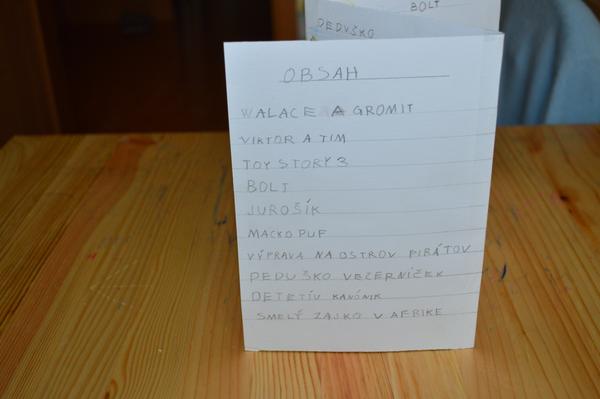 BOLT
DEDUŠKO
OBSAH
WALACE A GROMIT
VIKTOR A TIM
TOY STORY 3
BOLT
JUROŠÍK
MACKO PUF
VÝPRAVA NA OSTROV PIRÁTOV
DEDUŠKO VEZERNÍČEK
DETETÍV KANÓNIK
SMELÝ ZAJKO V AFRIKE